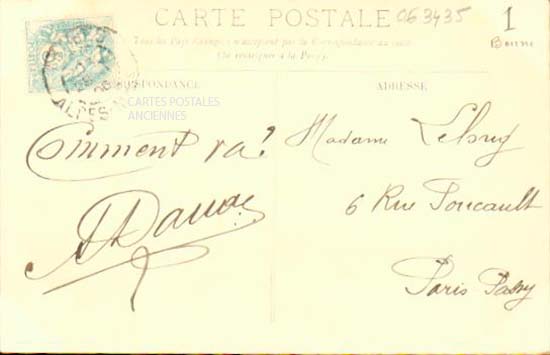 CARTE POSTALE
063435
1
Tous les Pays Etrangers n'acceptent pas la Correspondance au recto
(Se renseigner à la Poste)
CORRESPONDANCE
ADRESSE
CARTES POSTALES
ANCIENNES
ALPES
Comment va?
Madame
6 Rue Foucault
Paris Passy